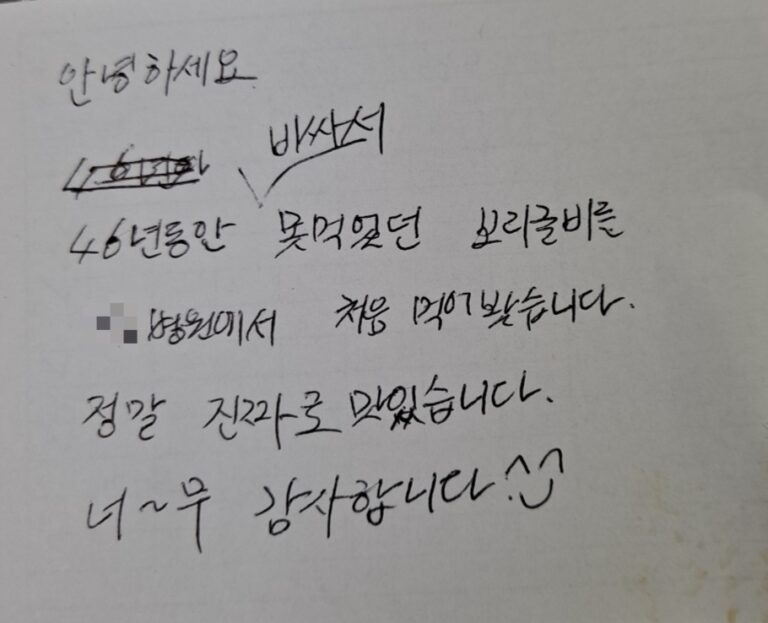 안녕하세요
비싸서
46년동안 못먹었던 보리굴비를
병원에서 처음 먹어봤습니다.
정말 진짜로 맛있습니다.
너~무 감사합니다